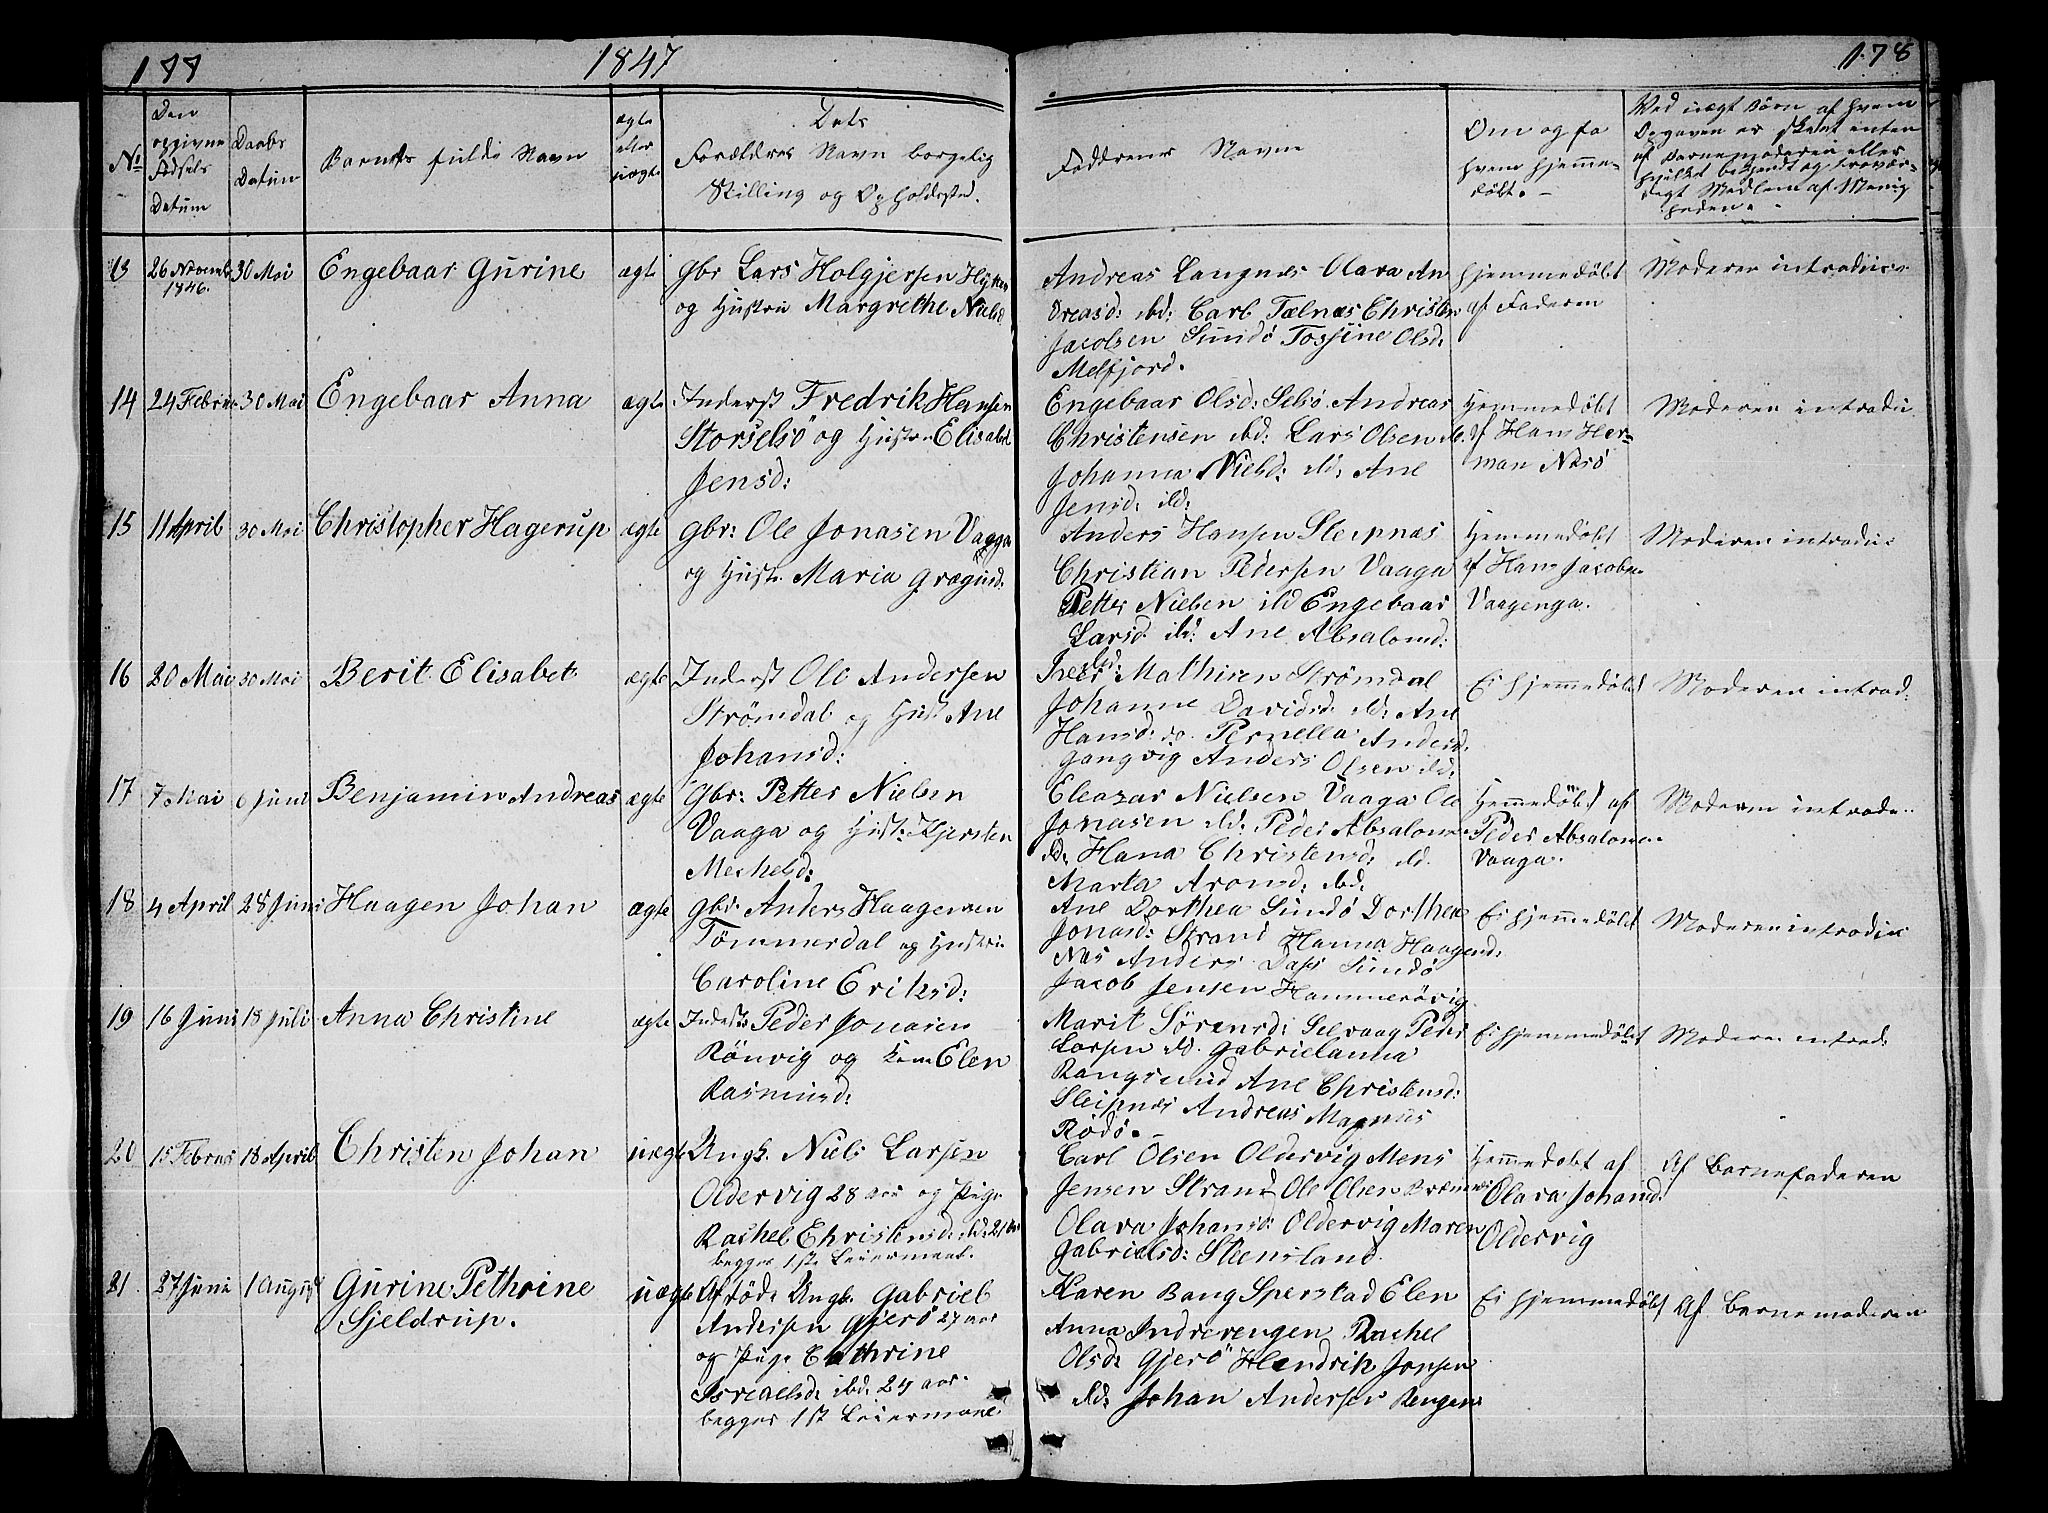 177
1847
178
No
Den opgivne Fødsels Datum
Daabs Datum
Barnets fulde Navn
ægte eller uægte
Dets Forældres Navn borgelig Stilling og Opholdssted.
Faddrenes Navne
Om og fa hvem hjemme-døbt. -
Ved uægt Børn af hvem Opgaven er skeet enten af Barnemoderen eller hvilket bekjendt og troværdigt Medlem af Menigheden.
13
26 Novembr 1846.
30 Mai
Engebaar Gurine
ægte
Gbr Lars Holgjersen
og Hustru Margrethe Nielsd
Andreas Langnes Olava An
dreasd: ibd: Carl Tælnes Christen
Jacobsen Sundø Tossine Olsd:
Melfjord.
hjemmedøbt
af Faderen
Moderen introdue
14
24 Februar
30 Mai
Engebaar Anna
ægte
Inderst Fredrik Hansen
Storselsö og Hustru Elisabet
Jensd:
Engebaar Olsd: Selsö Andreas
Christensen ibd: Lars Olsen ib.
Johanna Nielsd: ibd: Ane
Jensd: ibd:
Hjemmedøbt
af Hans Her-
man Næsö
Moderen introdu
15
11 April
30 Mai
Christopher Hagerup
ægte
Gbr: Ole Jonasen Vaaga
og Hust. Maria Grægusd:
Anders Hansen Sleipnæs
Christian Pedersen Vaaga
Petter Nielsen ibd Engebaar
Larsd. ibd: Ane Absalomd:
ibd:
Hjemmedøbt
af Hans Jacobs
Vaagenga.
Moderen introdu:
16
20 Mai
30 Mai
Berit Elisabet
ægte
Inderst Ole Andersen
Strömdal og Hust. Ane
Johansd:
Iver Mathisen Strømdal
Johanne Davidsd. ibd: Ane
Hansd: do. Pernella Andersd.
Gangvig Anders Olsen ibd:
Ei hjemmedøbt
Moderen introd:
17
7 Mai
6 Juni
Benjamin Andreas
ægte
Gbr: Petter Nielsen
Vaaga og Hust: Kjersten
Mechelsd:
Eleazar Nielsen Vaaga Ole
Jonasen ibd: Peder Absalom
ibd: Hana Christensd. ibd.
Marta Aronsd: ibd:
Hjemmedøbt af
Peder Absalom
Vaaga.
Moderen introdu..
18
4 April
28 Juni
Haagen Johan
ægte
Gbr: Anders Haagensen
Tömmerdal og Hustru
Caroline Eriksd:
Ane Dorthea Sundö Dorthea
Jonasd: Strand Hanna Haagensd:
Næs Anders Dass Sundö
Jacob Jensen Hammerövig
Ei hjemmedøbt
Moderen introdu
19
16 Juni
18 Juli
Anna Christine
ægte
Inderst Peder Jonasen
Rönvig og Kone Elen
Rasmusd:
Marit Sörensd: Selvaag Peder
Larsen ibd. Gabrielanna
Rangsund Ane Christensd:
Sleipnæs Andreas Magnus
Rödö.
Ei hjemmedøbt
Moderen introd:
20
15 Februar
18 April
Christen Johan
uægte
Ungk. Niels Larsen
Oldervig 28 aar og Pige
Rachel Christensd: ibd: 21 aar
begges 1ste Leiermaal.
Carl Olsen Oldervig Mens
Jensen Strand Ole Olsen
Olava Johansd: Oldervig Maren
Gabrielsd: Stensland.
Hjemmedøbt af
Olava Johansd.
Oldervig
Af Barnefaderen
21.
27 Juni
1 August
Gurine Pethrine
Sjeldrup.
uægte
Afdöde Ungk. Gabriel
Andersen Gjerö 27 aar
og Pige Cathrine
Isrealsd: ibd. 24 aar.
begges 1st Leiermaal
Karen Bang Sperstad Elen
Anna Indrerengen Rachel
Olsd: Gjerö Hendrik Jonsen
ibd: Johan Andersen Rengen
Ei hjemmedøbt
Af Barnemoderen